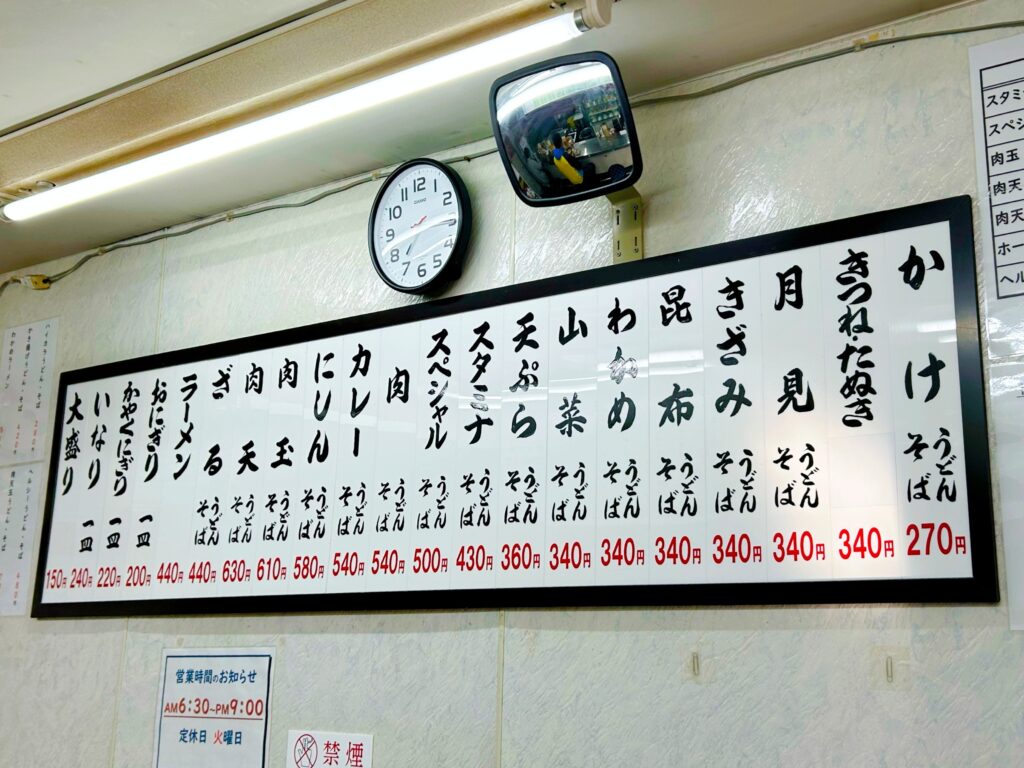 かけ うどん そば 270円
きつね・たぬき 340円
月見 うどん そば 340円
きざみ うどん そば 340円
昆布 うどん そば 340円
わかめ うどん そば 340円
山菜 うどん そば 340円
天ぷら うどん そば 360円
スタミナ うどん そば 430円
スペシャル うどん そば 500円
肉 うどん そば 540円
カレー うどん そば 540円
にしん うどん そば 580円
肉玉 うどん そば 610円
肉天 うどん そば 630円
ざる うどん そば 440円
ラーメン 440円
おにぎり 一皿 200円
かやくにぎり 一皿 220円
いなり 一皿 240円
大盛り 150円
12
1
2
3
4
5
6
7
8
9
10
11
CASIO
スタミ
スペシ
肉玉
肉天
肉天
ホー
ヘル
ハイカラうどん・そば
かき揚げうどん・そば
わかめラーメン
ヘルシーうどん・そば
営業時間のお知らせ
AM6:30~PM9:00
定休日 火曜日
禁煙